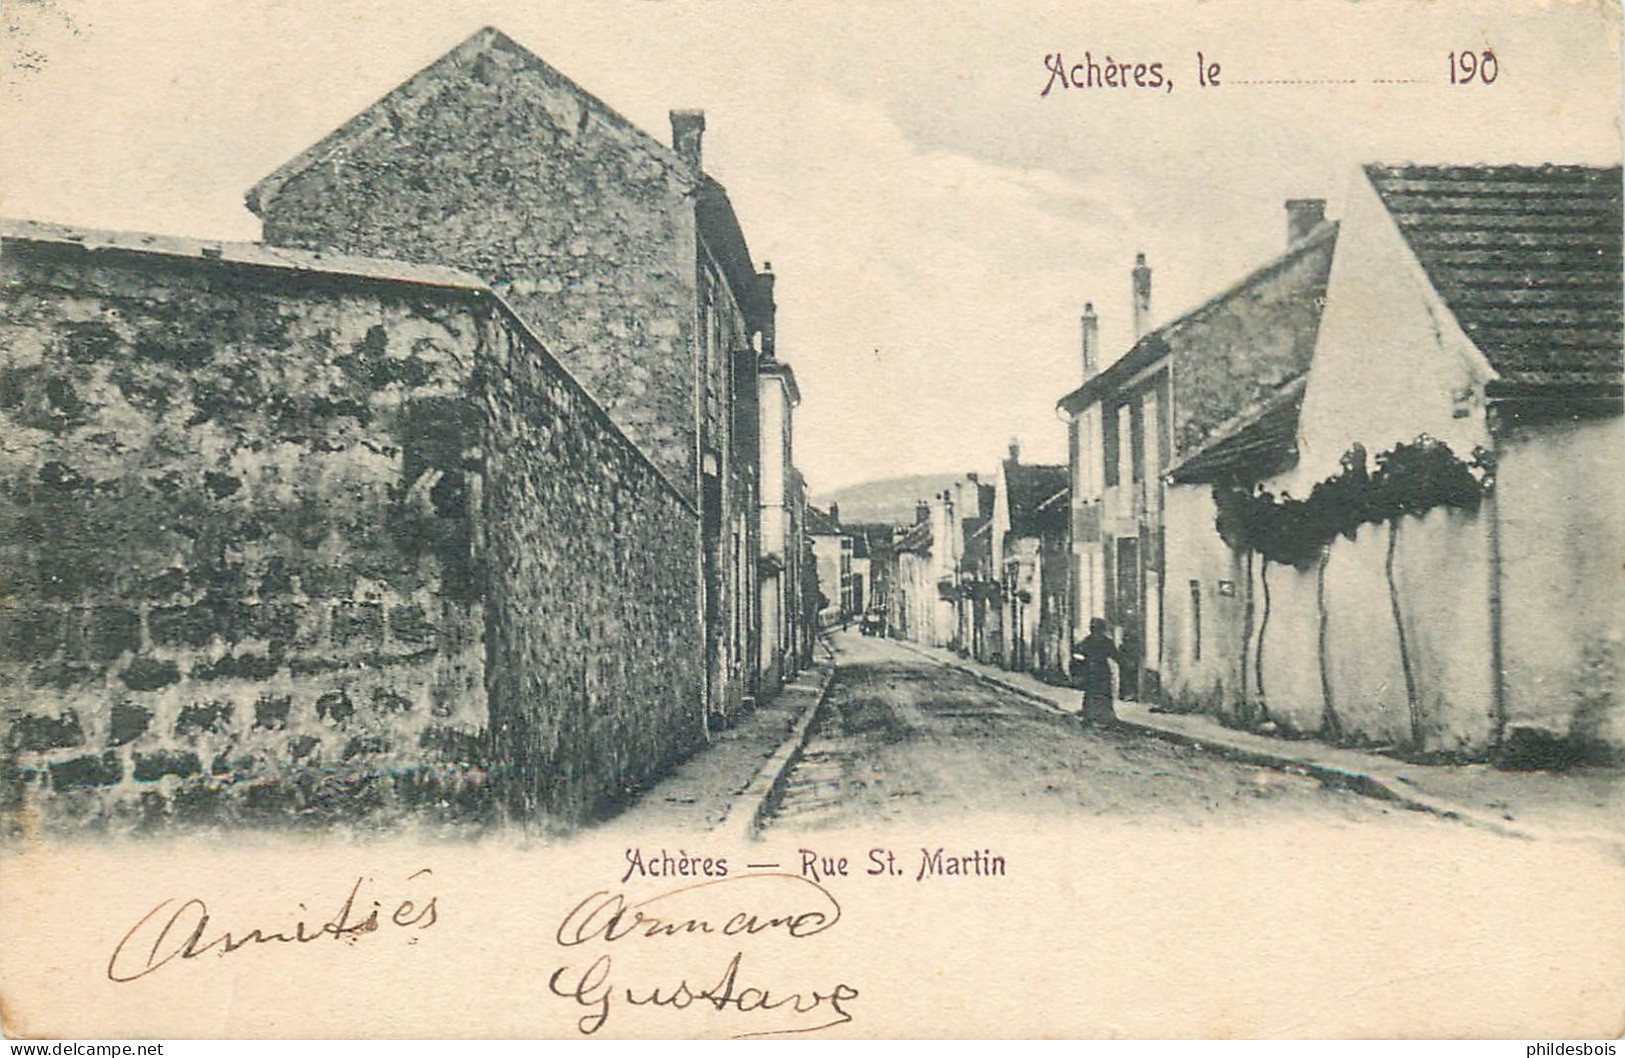 Achères, le .................... 190
Achères — Rue St. Martin
Amitiés Armand
Gustave
www.delcampe.net phildesbois